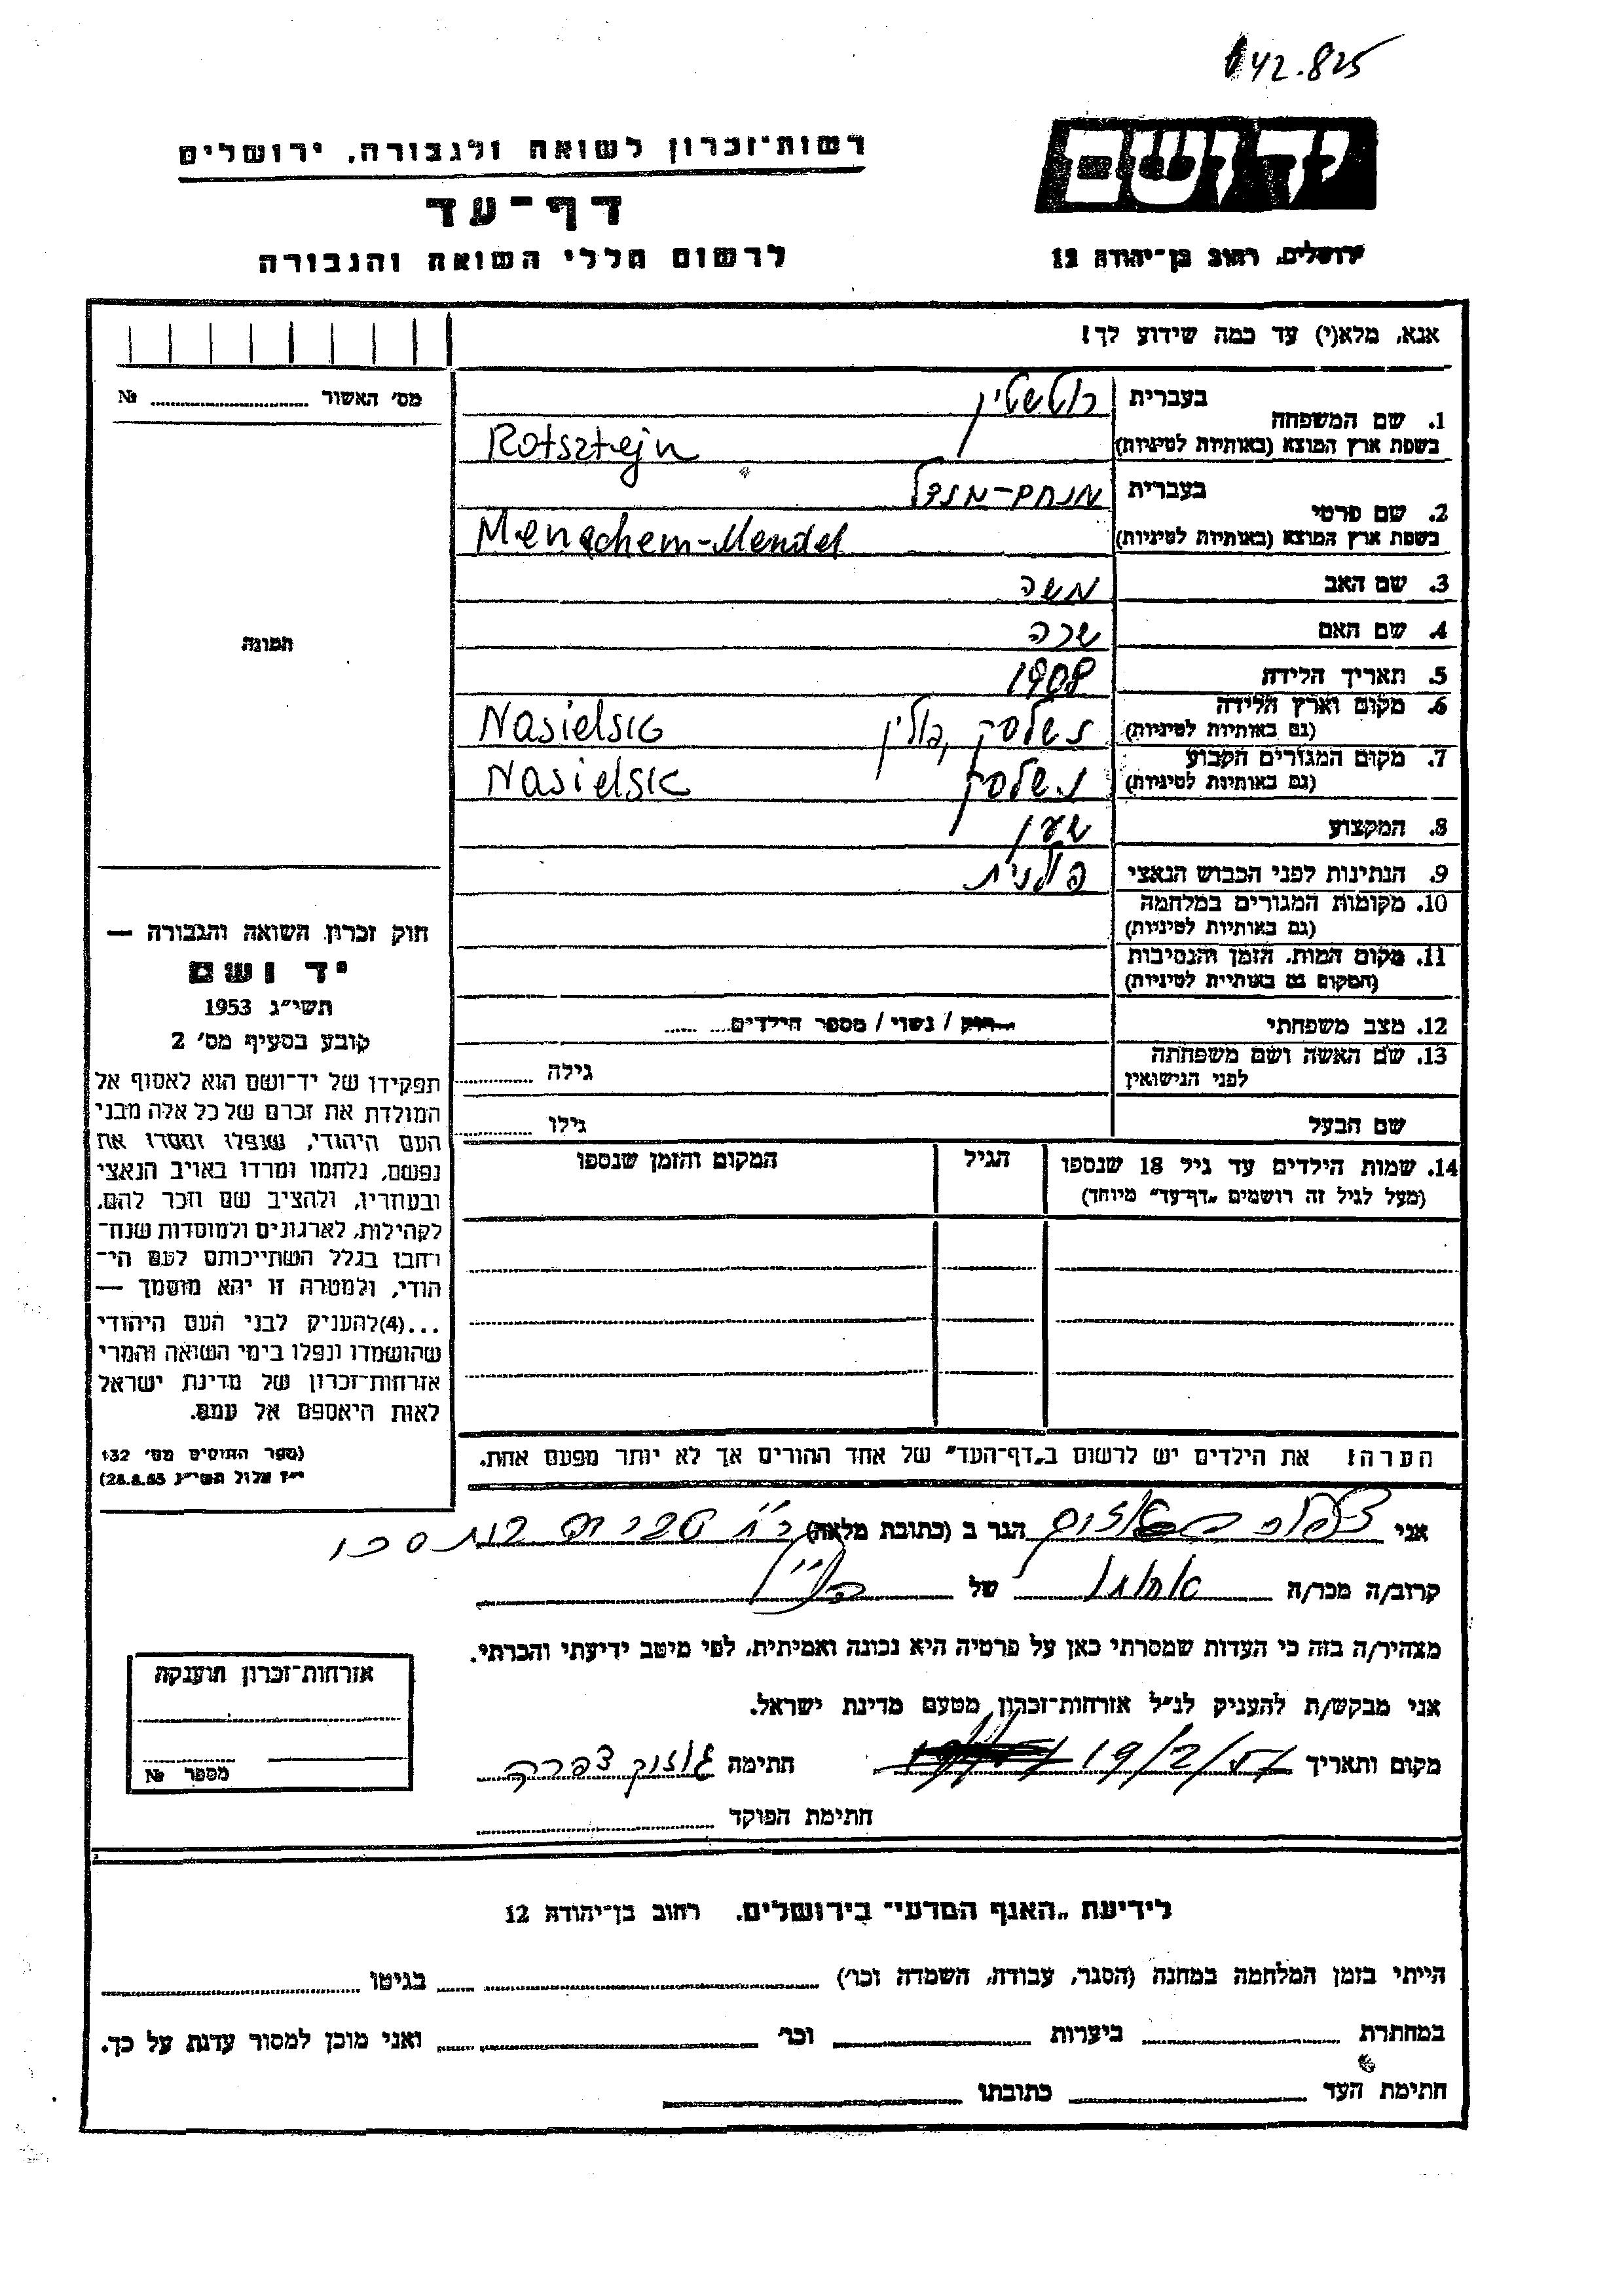 142.825
יד ושם
רשות־זכרון לשואה ולגבורה, ירושלים
דף־עד
לרשום חללי השואה והגבורה
ירושלים, רחוב בן־יהודה 12
אנא, מלא(י) עד כמה שידוע לך!
מס׳ האשור № 
1. שם המשפחה בעברית רוטשטין
בשפת ארץ המוצא (באותיות לטיניות) Rotsztejn
2. שם פרטי בעברית מנחם-מנדל
בשפת ארץ המוצא (באותיות לטיניות) Menachem-Mendel
3. שם האב משה
תמונה
4. שם האם שרה
5. תאריך הלידה 1908
6. מקום וארץ הלידה נשלסק, פולין Nasielsk
(גם באותיות לטיניות)
7. מקום המגורים הקבוע נשלסק Nasielsk
(גם באותיות לטיניות)
8. המקצוע שען
9. הנתינות לפני הכבוש הנאצי פולנית
10. מקומות המגורים במלחמה
(גם באותיות לטיניות)
11. מקום המות, הזמן והנסיבות
(המקום גם באותיות לטיניות)
12. מצב משפחתי רווק / נשוי / מספר הילדים
13. שם האשה ושם משפחתה
לפני הנישואין גילה
שם הבעל גילו
14. שמות הילדים עד גיל 18 שנספו הגיל המקום והזמן שנספו
(מעל לגיל זה רושמים „דף־עד” מיוחד)
חוק זכרון השואה והגבורה —
יד ושם
תשי״ג 1953
קובע בסעיף מס׳ 2
תפקידו של יד־ושם הוא לאסוף אל
המולדת את זכרם של כל אלה מבני
העם היהודי, שנפלו ומסרו את
נפשם, נלחמו ומרדו באויב הנאצי
ובעוזריו, ולהציב שם וזכר להם,
לקהילות, לארגונים ולמוסדות שנח־
רחבו בגלל השתייכותם לעם הי־
הודי, ולמטרה זו יהא מוסמך —
...(4)להעניק לבני העם היהודי
שהושמדו ונפלו בימי השואה והמרי
אזרחות־זכרון של מדינת ישראל
לאות היאספם אל עמם.
(ספר החוקים מס׳ 132
י״ז אלול תשי״ג 28.8.53)
הערה: את הילדים יש לרשום ב„דף־העד” של אחד ההורים אך לא יותר מפעם אחת.
אני צפורה הגר ב (כתובת מלאה)
קרוב/ה מכר/ה אחותו של הנ״ל
מצהיר/ה בזה כי העדות שמסרתי כאן על פרטיה היא נכונה ואמיתית, לפי מיטב ידיעתי והכרתי.
אני מבקש/ת להעניק לנ״ל אזרחות־זכרון מטעם מדינת ישראל.
מקום ותאריך 19/2/57 חתימה צפרה
חתימת הפוקד
אזרחות־זכרון תוענקה
מספר №
לידיעת „האגף המדעי” בירושלים, רחוב בן־יהודה 12
הייתי בזמן המלחמה במחנה (הסגר, עבודה, השמדה וכו׳) בגיטו
במחתרת ביערות וכו׳ ואני מוכן למסור עדות על כך.
חתימת העד כתובתו